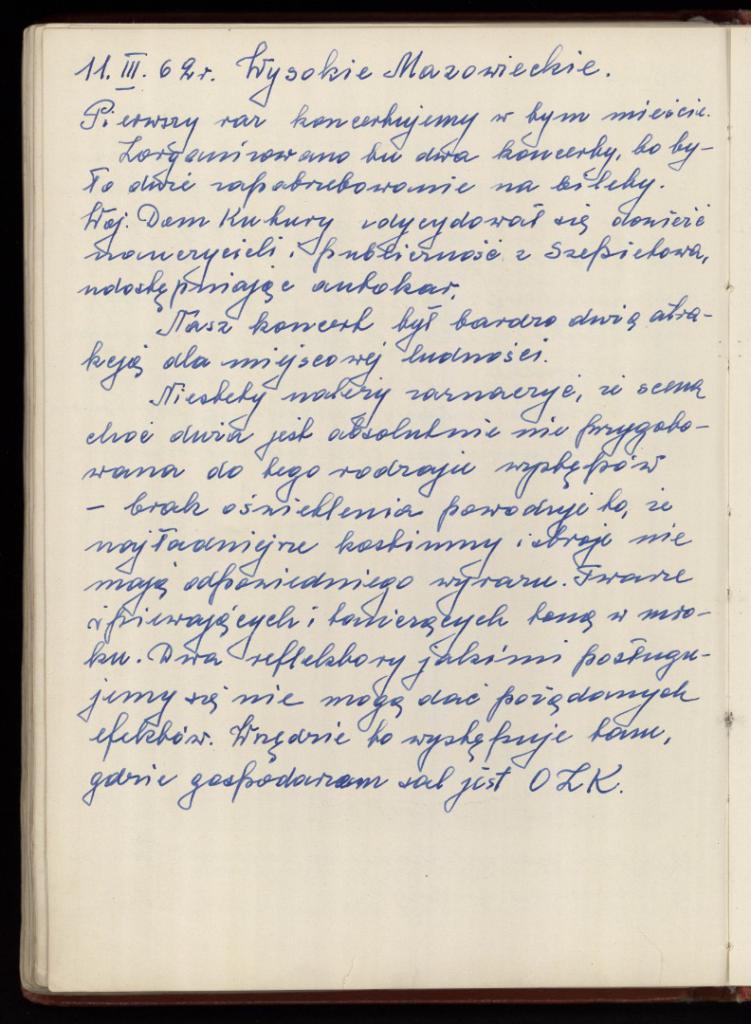 11. III. 62r. Wysokie Mazowieckie.
Pierwszy raz koncertujemy w tym mieście.
Zorganizowano tu dwa koncerty, bo by-
ło duże zapotrzebowanie na bilety.
Woj. Dom Kultury zdycydował się dowieźć
nauczycieli i publiczność z Szepietowa,
udostępniając autokar.
Nasz koncert był bardzo dużą atra-
kcją dla miejscowej ludności.
Niestety należy zaznaczyć, że scena
choć duża jest absolutnie nie przygoto-
wana do tego rodzaju występów
– brak oświetlenia powoduje to, że
najładniejsze kostiumy i stroje nie
mają odpowiedniego wyrazu. Twarze
śpiewających i tańczących toną w mro-
ku. Dwa reflektory jakimi posługu-
jemy się nie mogą dać pożądanych
efektów. Wszędzie to występuje tam,
gdzie gospodarzem sal jest OZK.